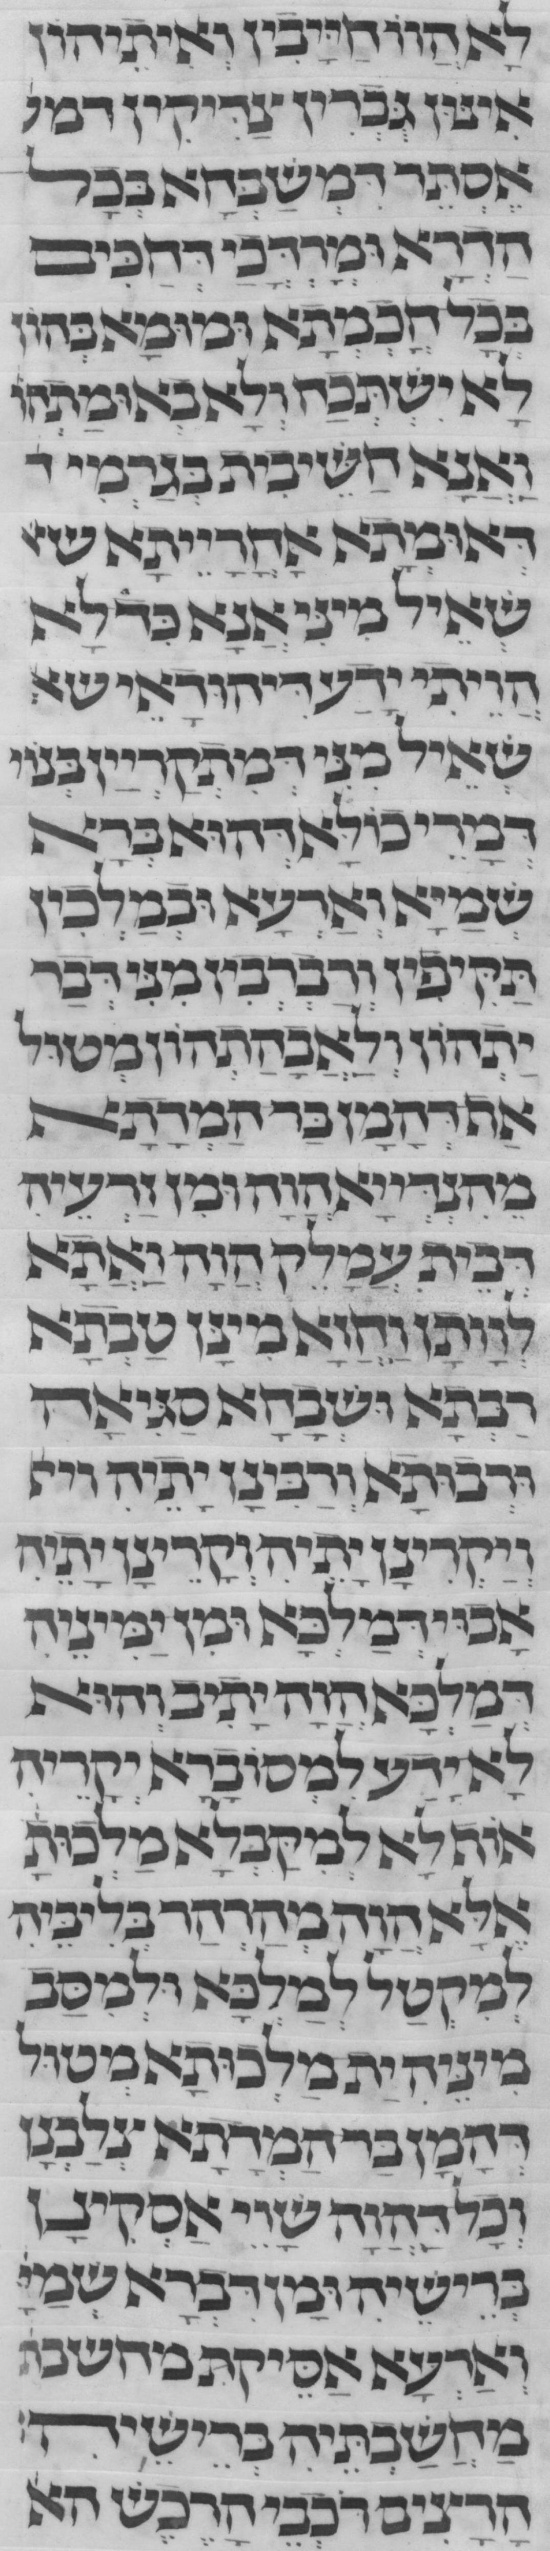 לָא הֲווֹ חַיָיבִין וְאִיתֵיהוֹן
אִינוּן גֻבְרִין צַדִיקִין דמע
אֶסְתֵר דִמְשַבְחָא בְכָל
הַדָרָא וּמָרְדְכַי דְחַכִּים
בְכָל חָכְמְתָא וּמוּמָא בְהוֹן
לָא יִשְתְכַח וְלָא בְאוּמַתְהוֹ
וַאֲנָא חַשֵיבִית בְגַרְמִי ד
דְאוּמְתָא אָחֳרֵייתָא שא
שְאֵיל מִינִי אֲנָא כִד לָא
הֲוֵיתִי יָדַע דִיהוּדָאֵי שא
שְאֵיל מִנִי דְמִתְקַרְיַין בְנוֹי
דְמָרֵי כוֹלָא דְהוּא בְרָא
שְמַיָא וְאַרְעָא וּבְמַלְכִין
תַקִיפִין וְרַבְרְבִין מִנִי דְבַר
יַתְהוֹן וְלַאֲבָהַתְהוֹן מְטוּל
אַת דְהָמָן בַר הַמְדָתָא
מֵהִנְדְיָיא הֲוָה וּמִן זַרְעֵיה
דְבֵית עֲמָלֵק הֲוָה וַאֲתָא
לְוָותָן וַחֲזָא מִינָן טַבְתָא
רַבְתָא וּשְבָחָא סַגִיאָה
וּרְבוּתָא וְרַבִינָן יָתֵיה וית
וְיַקְרִינָן יָתֵיה וְקָרֵינָן יָתֵיה
אָבוּי דְמַלְכָא וּמִן יַמִינֵיה
דְמַלְכָא הֲוָה יָתִיב וְהוּא
לָא יָדַע לִמְסוֹבָרָא יְקָרֵיה
אוֹת לָא לְמִקַבְלָא מַלְכוּתָ
אֶלָא הֲוָה מְהַרְהַר בְלִיבֵיה
לְמִקְטַל לְמַלְכָא וּלְמִסַב
מִינֵיה יַת מַלְכוּתָא מְטוּל
דְהָמָן בַר הַמְדָתָא צְלַבְנָן
וְכָל דַהֲוָה שָוֵי אַסְקִינָן
בְרֵישֵיה וּמָן דִבְרָא שְמַיָ
וְאַרְעָא אַסֵיקִת מחשבת
מַחְשַבְתֵיה בְרֵישֵיה:
הָרָצִים רֹכְבֵי הָרֶכֶש הא